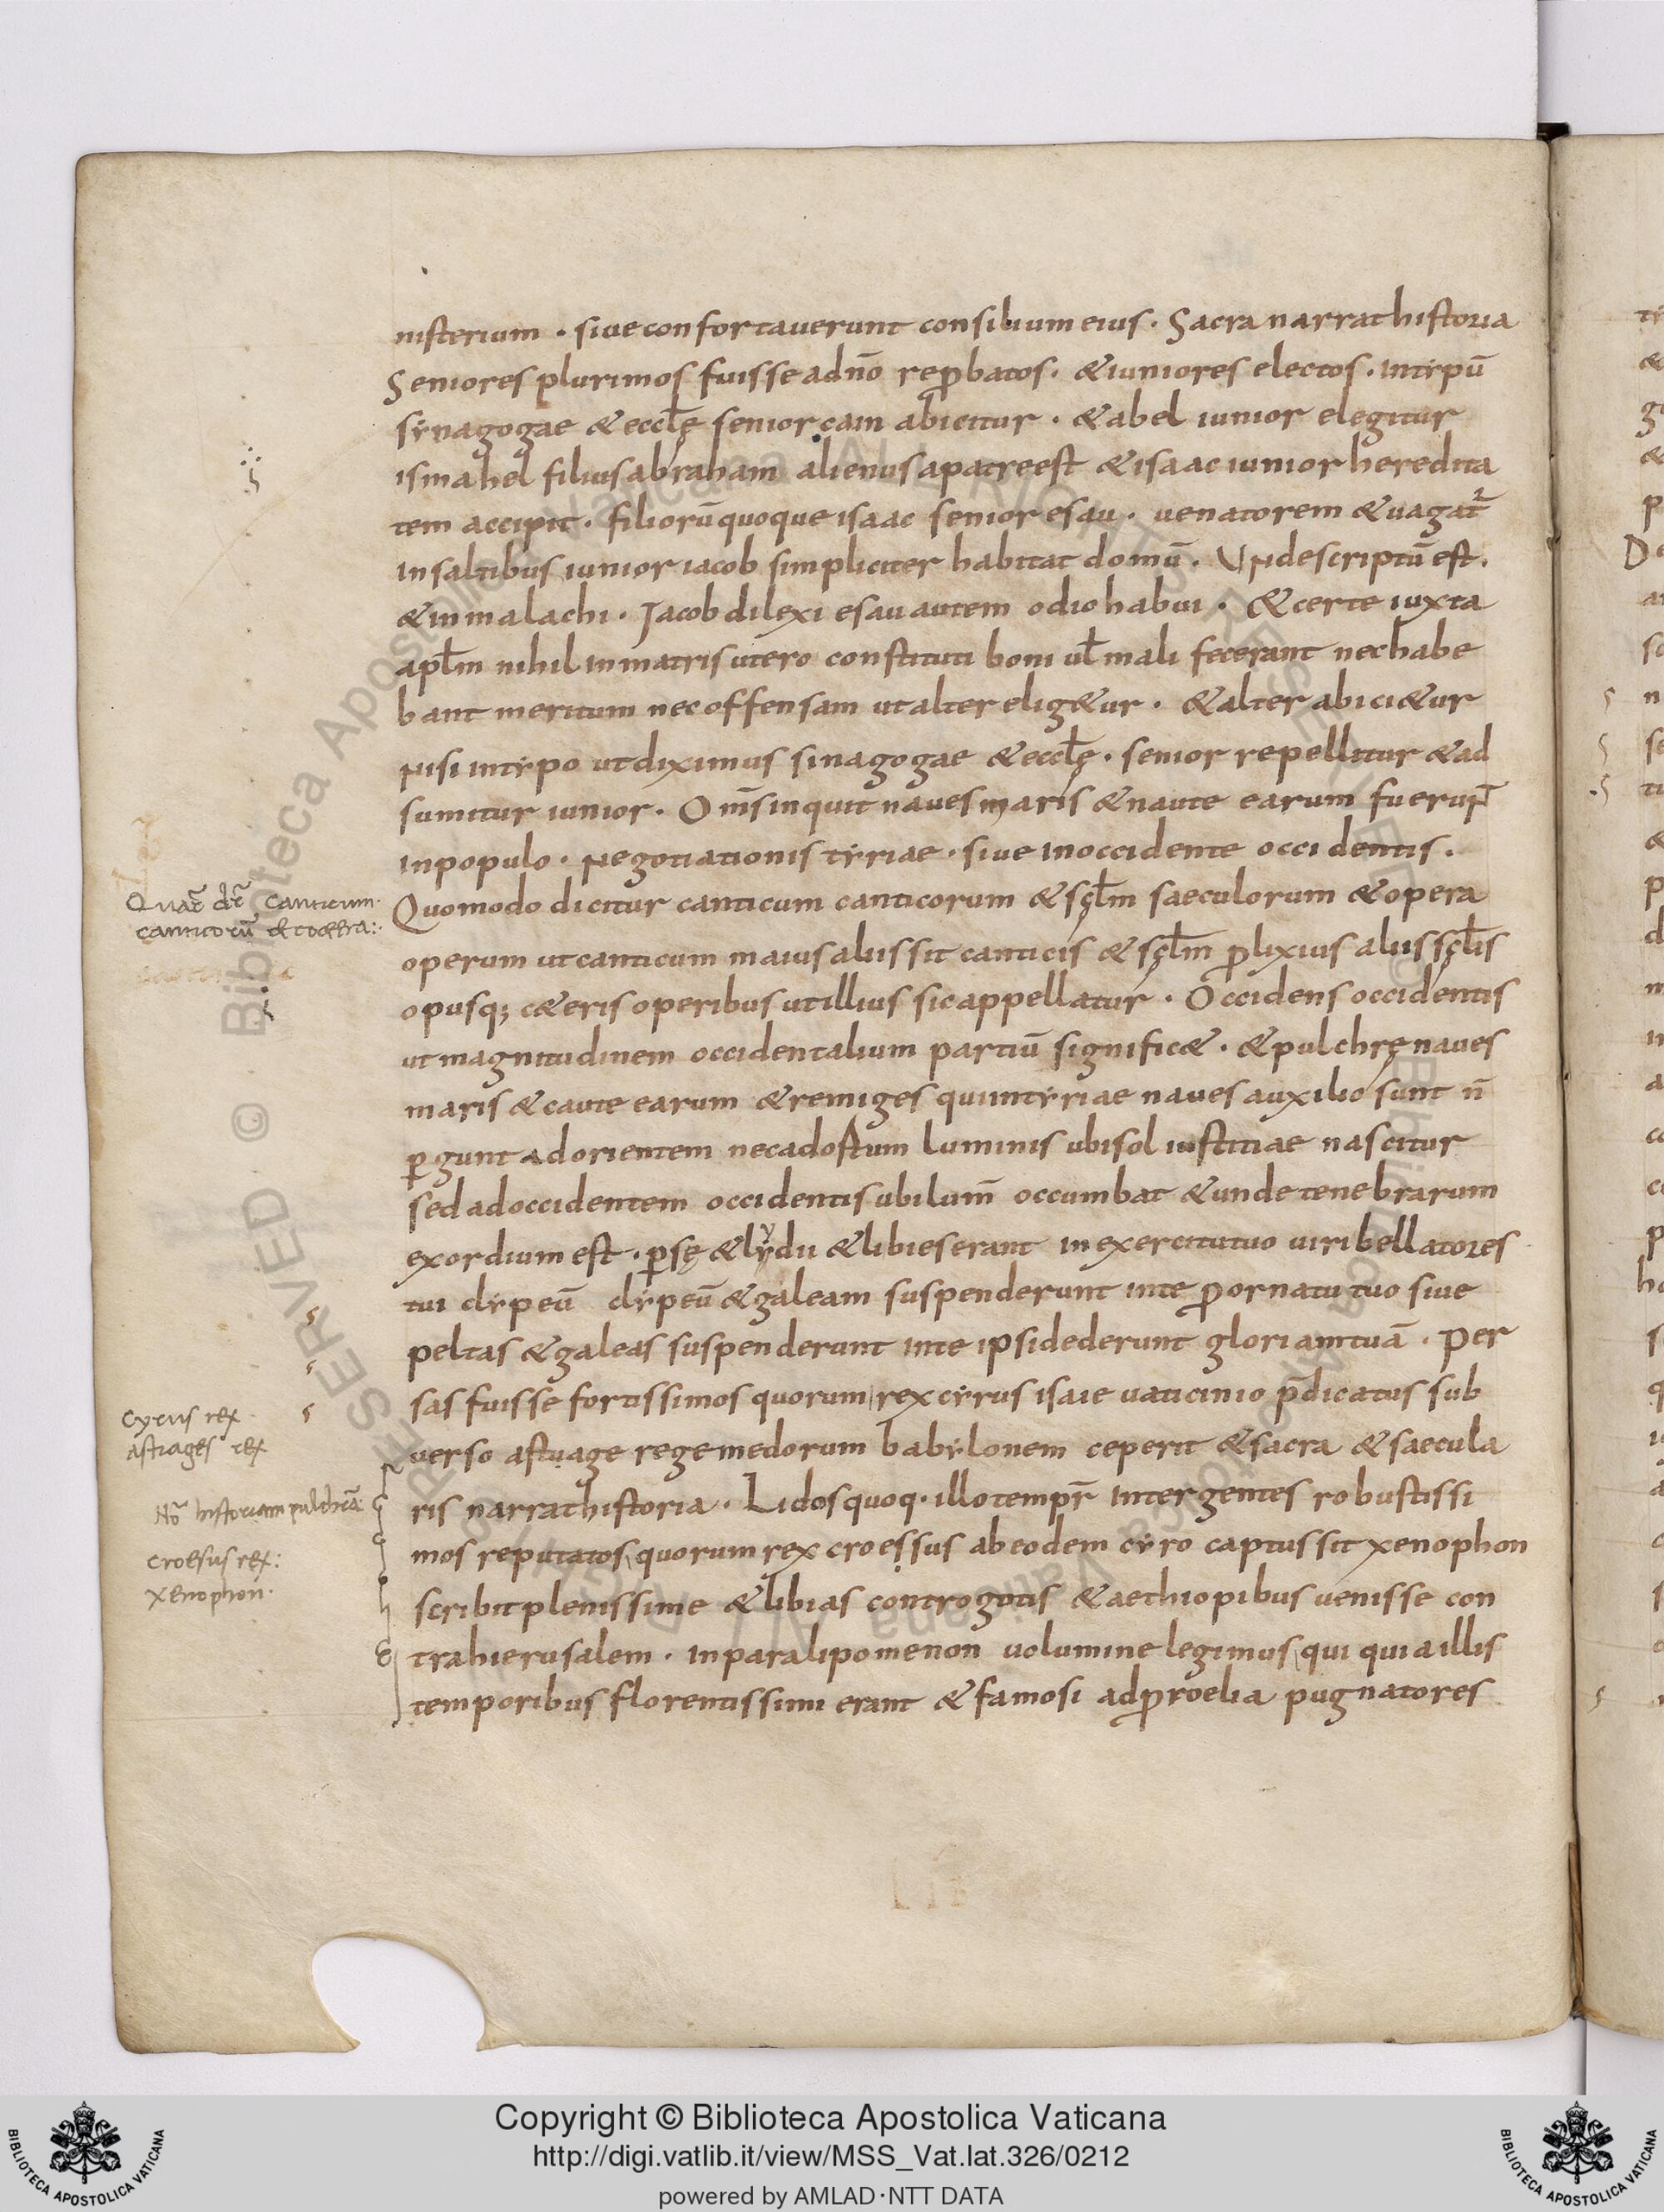 nisterium · siue confortauerunt consilium eius · Sacra narrat historia
Seniores plurimos fuisse adnō reꝓbatos · & iuniores electos · intẏpū
sẏnagogae & eccl̄ę senior cain abicitur · & abel iunior elegitur
ismahel filius abraham alienus apatre est & isaac iunior heredita
tem accipit · filiorū quoque isaac senior esau · uenatorem & uagat̄
insaltibus iunior iacob simpliciter habitat domū · Unde scriptū est ·
& inmalachi · Jacob dilexi esau autem odio habui · & certe iuxta
apl̄m nihil inmatris utero constituti boni ul̄ mali fecerant nec habe
bant meritum nec offensam ut alter elig&ur · & alter abici&ur
Nisi intẏpo ut diximus sinagogae & eccl̄ę · senior repellitur & ad
sumitur iunior · Om̄s inquit naues maris & naute earum fuerunt̄
inpopulo · Negotiationis tẏriae · siue inoccidente occidentis ·
Quomodo dicitur canticum canticorum & scl̄m saeculorum & opera
operum ut canticum maius aliis sit canticis & scl̄m ꝓlixius aliis scl̄is
opusq; c&eris operibus ut illius sic appellatur · Occidens occidentis
ut magnitudinem occidentalium partiū signific& · & pulchrę naues
maris & caute earum & remiges qui intẏriae naues auxilio sunt n̄
ꝑgunt ad orientem nec ad ostium luminis ubi sol iustitiae nascitur
sed ad occidentem occidentis ubi lum̄ occumbat & unde tenebrarum
exordium est · ꝑsę & lẏdii & libies erant in exercitu tuo uiri bellatores
tui clẏpeū clẏpeū & galeam suspenderunt inte ꝓ ornatu tuo siue
peltas & galeas suspenderunt inte ipsi dederunt gloriam tuā · Per
sas fuisse fortissimos quorum rex cẏrus isaie uaticinio p̄dicatus sub
uerso astuage rege medorum babẏlonem ceperit & sacra & saecula
ris narrat historia · Lidos quoq · illo tempr̄ inter gentes robustissi
mos reputatos quorum rex croessus ab eodem cẏro captus sit xenophon
scribit plenissime & libias controgotis & aethiopibus uenisse con
tra hierusalem · inparalipomenon uolumine legimus qui quia illis
temporibus florentissimi erant & famosi ad ꝓroelia pugnatores
Quar̄ dr̄ canticum
canticorū & c&era:
Cyrus rex
astiages rex
No᷒ historiam pulchrā
Croesus rex:
Xenophon·
Copyright © Biblioteca Apostolica Vaticana
http://digi.vatlib.it/view/MSS_Vat.lat.326/0212
powered by AMLAD·NTT DATA
BIBLIOTECA APOSTOLICA VATICANA
BIBLIOTECA APOSTOLICA VATICANA